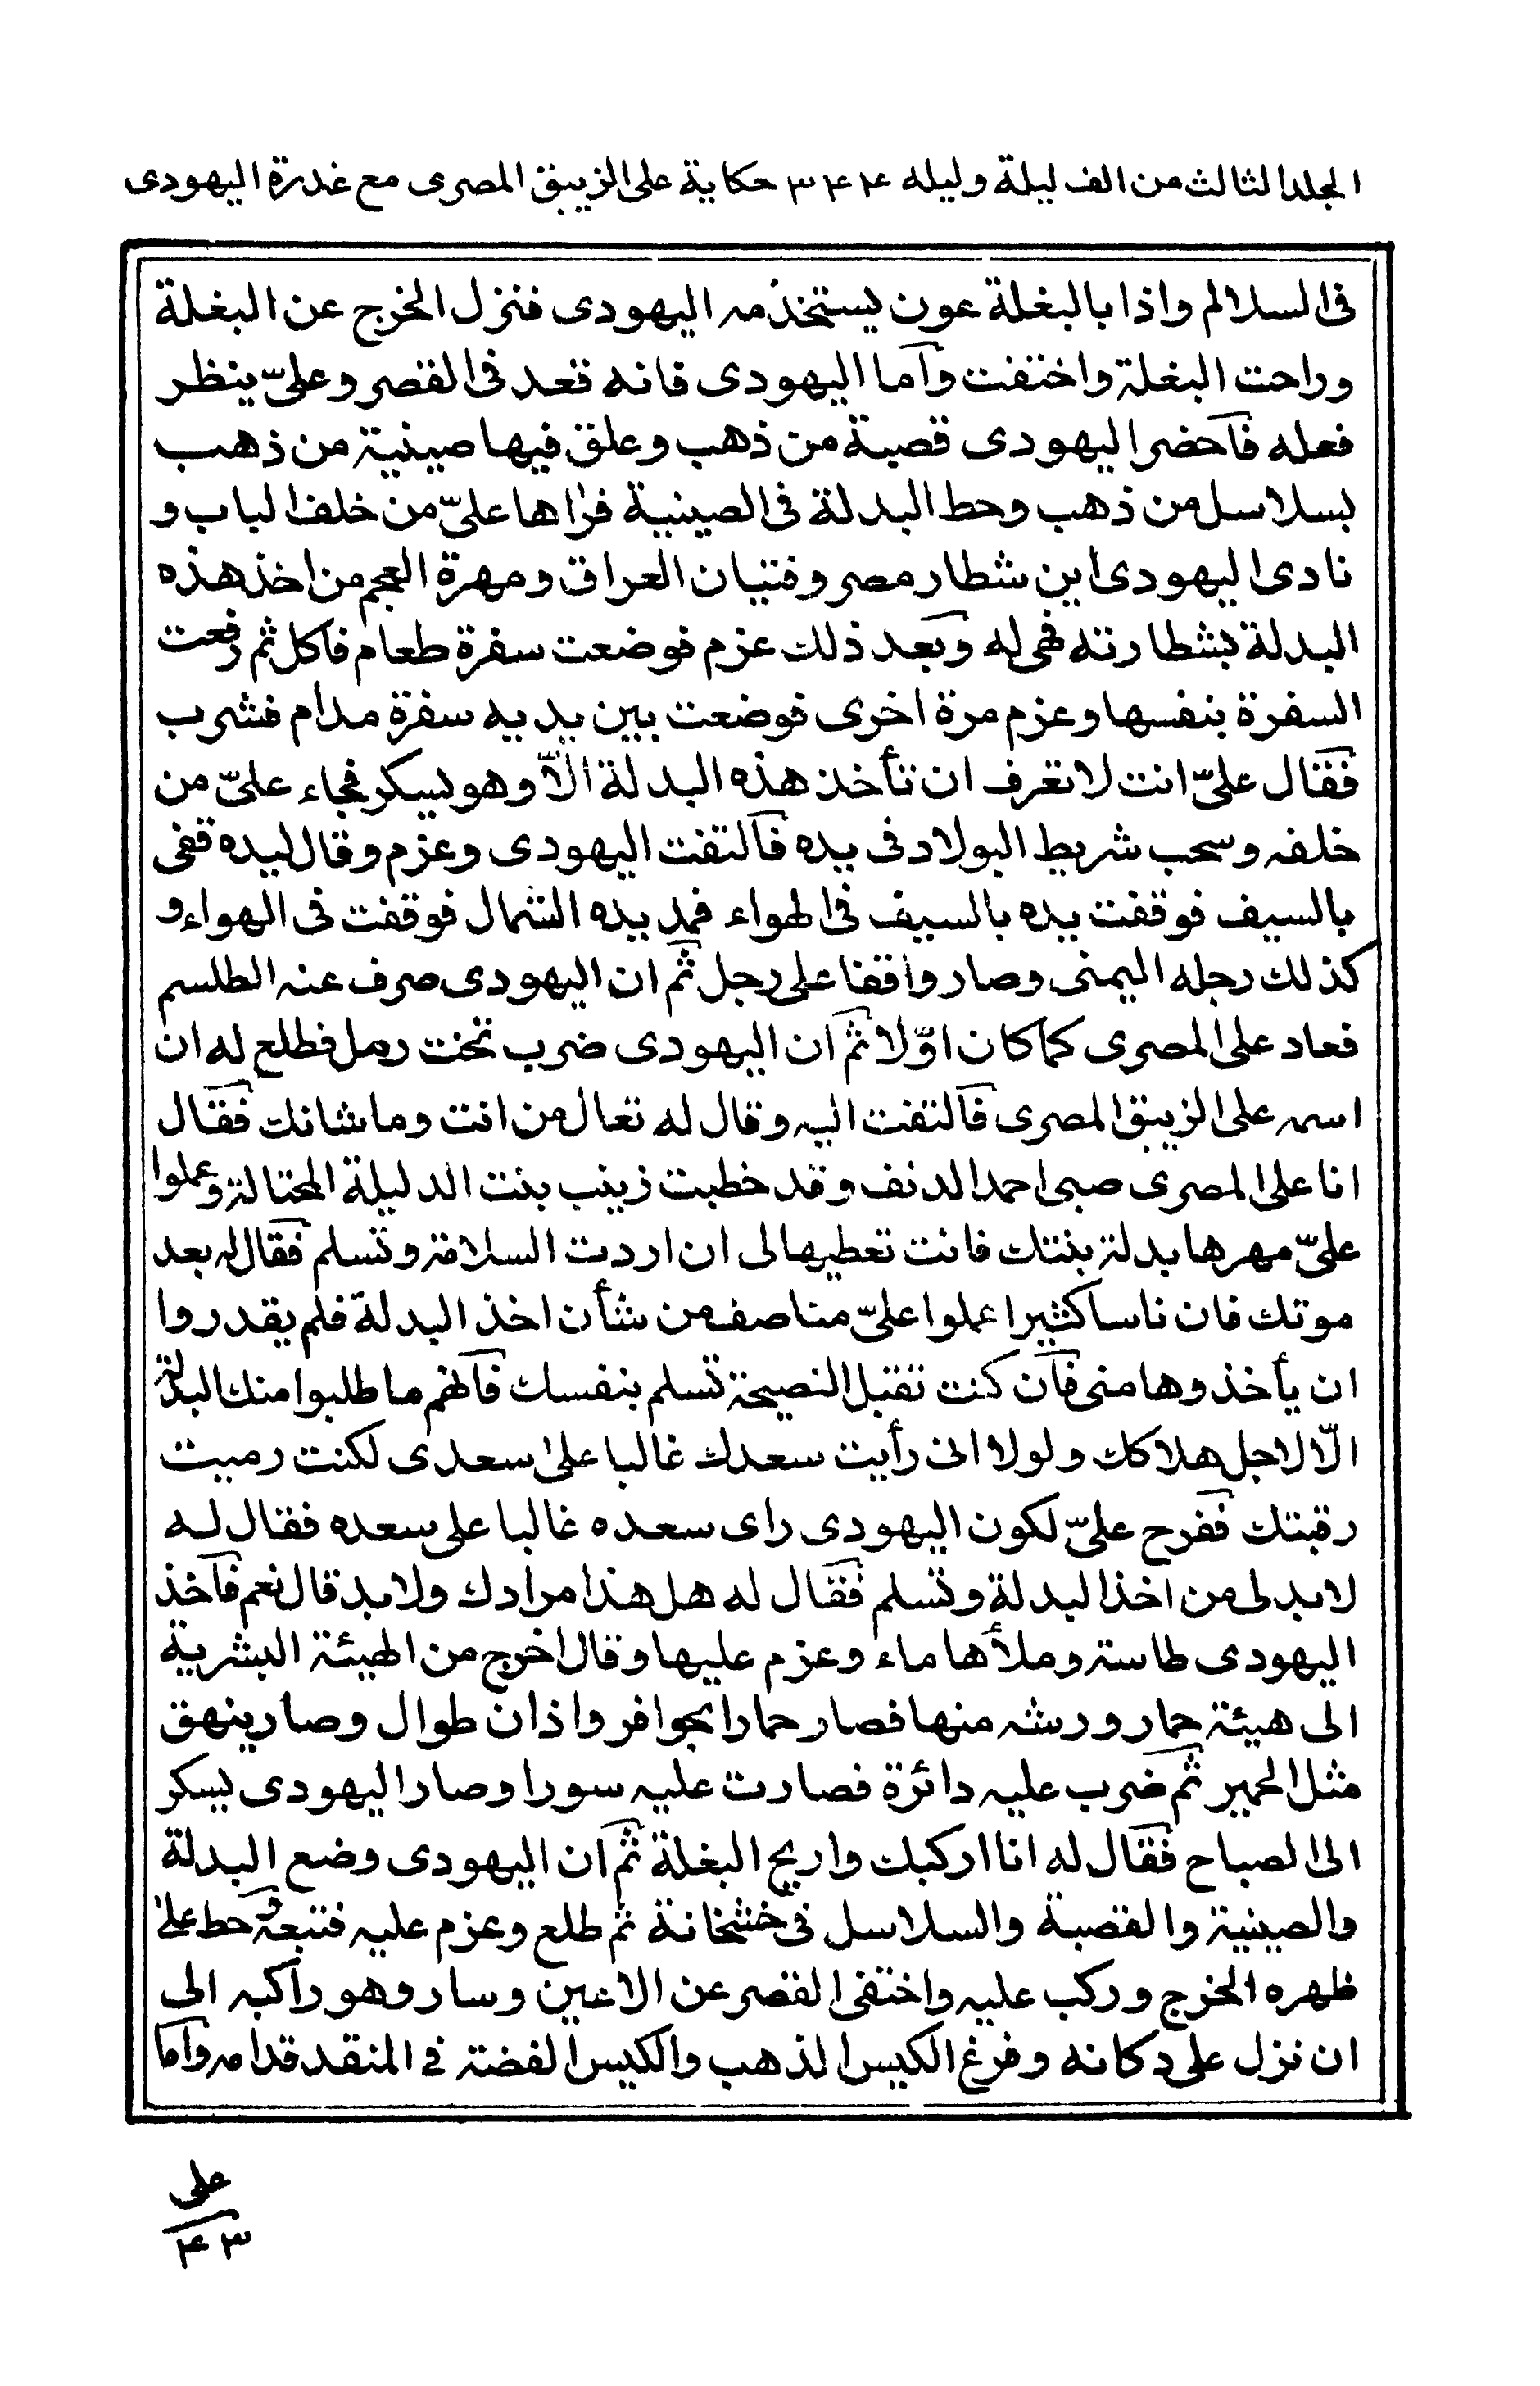 المجلد الثالث من الف ليلة وليله ۳۴۴ حكاية على الزيبق المصرى مع عذرة اليهودى
فى السلالم واذا بالبغلة عون يستخدمه اليهودى فنزل الخرج عن البغلة
وراحت البغلة واختفت وآما اليهودى فانه قعد فى القصر وعلىّ ينظر
فعله فآحضر اليهودى قصبة من ذهب وعلق فيها صينية من ذهب
بسلاسل من ذهب وحط البدلة فى الصينية فراها علىّ من خلف الباب و
نادى اليهودى اين شطار مصر وفتيان العراق ومهرة العجم من اخذ هذه
البدلة بشطارته فهى له وبعد ذلك عزم فوضعت سفرة طعام فاكل ثم رفعت
السفرة بنفسها وعزم مرة اخرى فوضعت بين يديه سفرة مدام فشرب
فقال علىّ انت لا تعرف ان تأخذ هذه البدلة الّا وهو يسكر فجاء علىّ من
خلفه وسحب شريط البولاد فى يده فآلتفت اليهودى وعزم وقال ليده قفى
بالسيف فوقفت يده بالسيف فى الهواء فمد يده الشمال فوقفت فى الهواء و
كذلك رجله اليمنى وصار واقفا على رجل ثم ان اليهودى صرف عنه الطلسم
فعاد على المصرى كما كان اوّلا ثم ان اليهودى ضرب تخت رمل فطلع له ان
اسمه على الزيبق المصرى فآلتفت اليه وقال له تعال من انت وما شانك فقال
انا على المصرى صبى احمد الدنف وقد خطبت زينب بنت الدليلة المحتالة وعملوا
علىّ مهرها بدلة بنتك فانت تعطيها لى ان اردت السلامة وتسلم فقال له بعد
موتك فان ناسا كثيرا عملوا علىّ مناصف من شأن اخذ البدلة فلم يقدروا
ان يأخذوها منى فآن كنت تقبل النصيحة تسلم بنفسك فآنهم ما طلبوا منك البدلة
الّا لاجل هلاكك ولولا انى رأيت سعدك غالبا على سعدى لكنت رميت
رقبتك ففرح علىّ لكون اليهودى راى سعده غالبا على سعده فقال له
لا بد لى من اخذ البدلة وتسلم فقال له هل هذا مرادك ولا بد قال نعم فآخذ
اليهودى طاسة وملأها ماء وعزم عليها وقال اخرج من الهيئة البشرية
الى هيئة حمار ورشه منها فصار حمارا بحوافر واذان طوال وصار ينهق
مثل الحمير ثم ضرب عليه دائرة فصارت عليه سورا وصار اليهودى يسكر
الى الصباح فقال له انا اركبك واريح البغلة ثم ان اليهودى وضع البدلة
والصينية والقصبة والسلاسل فى خشخانة ثم طلع وعزم عليه فتبعه وحط على
ظهره الخرج وركب عليه واختفى القصر عن الاعين وسار وهو راكبه الى
ان نزل على دكانه وفرغ الكيس الذهب والكيس الفضة فى المنقد قدامه وآما
على
۴۳